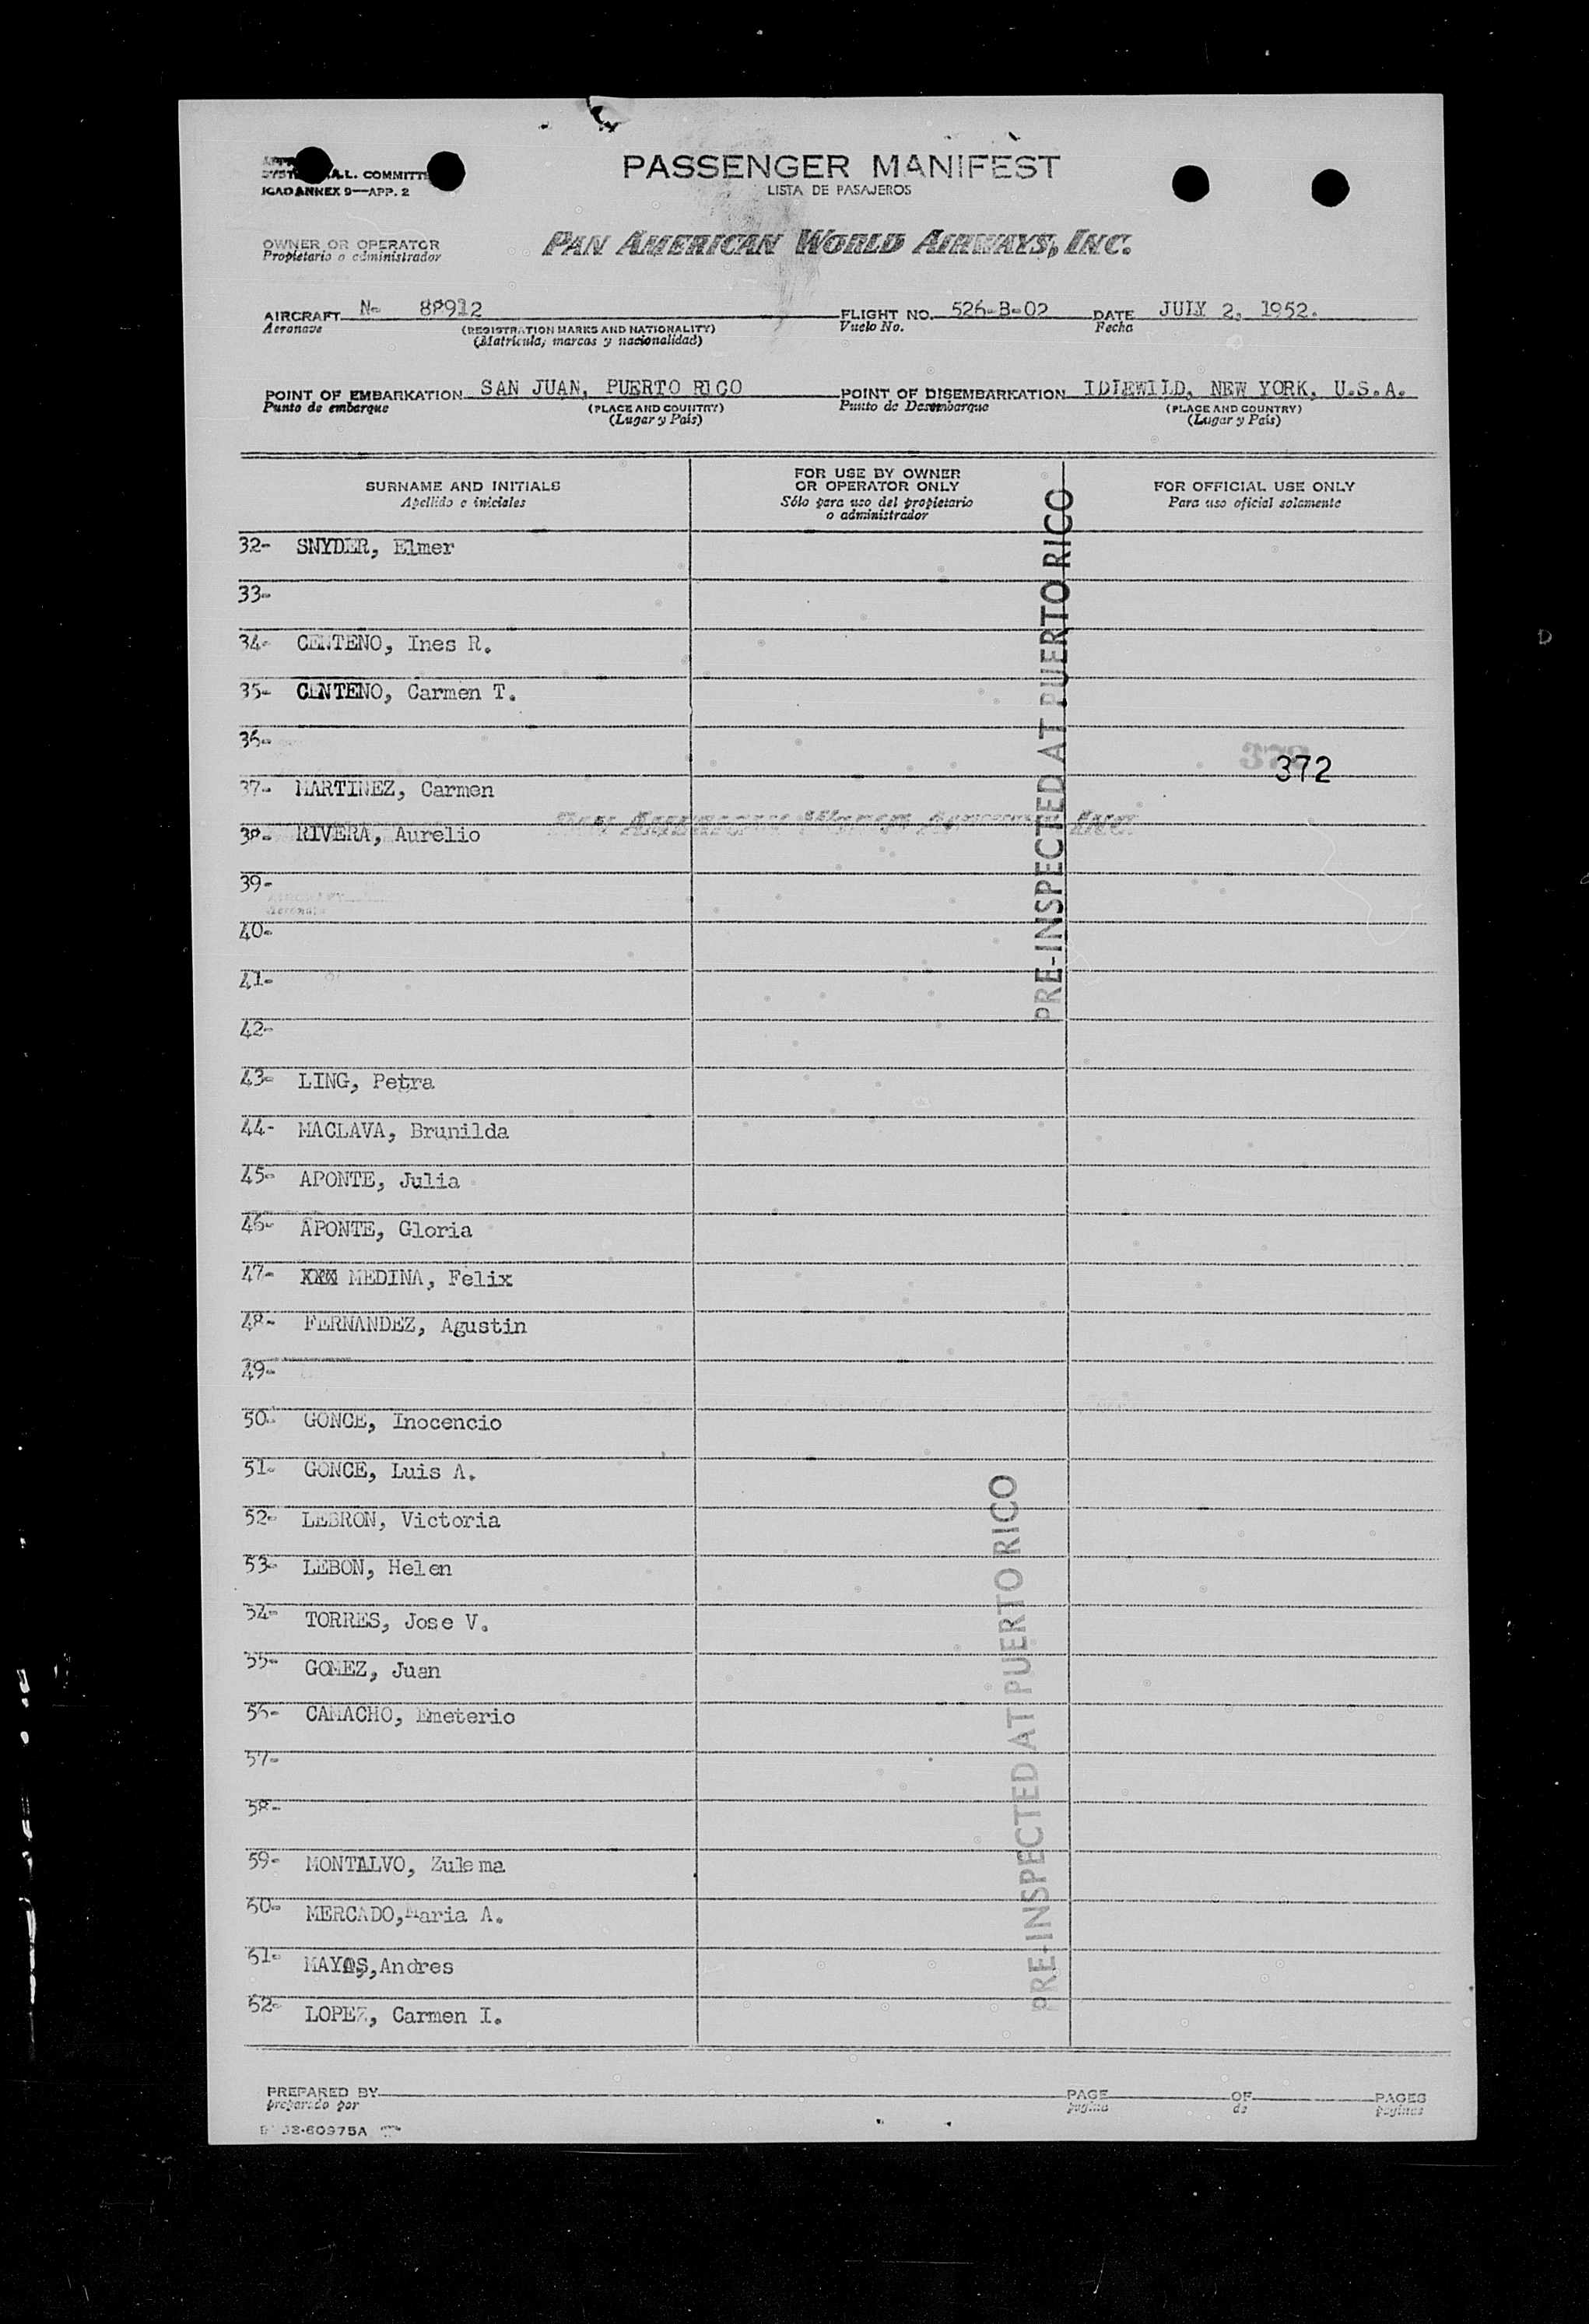 PASSENGER MANIFEST
LISTA DE PASAJEROS
A.L. COMMITTE
ICAO ANNEX 9—APP. 2
PAN AMERICAN WORLD AIRWAYS, INC.
OWNER OR OPERATOR
Propietario o administrador
AIRCRAFT N- 88912 FLIGHT NO. 526-B-02 DATE JULY 2, 1952.
Aeronave (REGISTRATION MARKS AND NATIONALITY) Vuelo No. Fecha
(Matrícula, marcas y nacionalidad)
POINT OF EMBARKATION SAN JUAN, PUERTO RICO POINT OF DISEMBARKATION IDLEWILD, NEW YORK, U.S.A.
Punto de embarque (PLACE AND COUNTRY) Punto de Desembarque (PLACE AND COUNTRY)
(Lugar y País) (Lugar y País)
SURNAME AND INITIALS FOR USE BY OWNER OR OPERATOR ONLY FOR OFFICIAL USE ONLY
Apellido e iniciales Sólo para uso del propietario o administrador Para uso oficial solamente
32- SNYDER, Elmer
33-
34- CENTENO, Ines R.
35- CENTENO, Carmen T.
36-
372
37- MARTINEZ, Carmen
38- RIVERA, Aurelio
39-
40-
41-
42-
PRE-INSPECTED AT PUERTO RICO
43- LING, Petra
44- MACLAVA, Brunilda
45- APONTE, Julia
46- APONTE, Gloria
47- XXX MEDINA, Felix
48- FERNANDEZ, Agustin
49-
50- GONCE, Inocencio
51- GONCE, Luis A.
52- LEBRON, Victoria
53- LEBON, Helen
54- TORRES, Jose V.
55- GOMEZ, Juan
56- CAMACHO, Emeterio
57-
58-
59- MONTALVO, Zulema
60- MERCADO, Maria A.
61- MAYOS, Andres
62- LOPEZ, Carmen I.
PRE-INSPECTED AT PUERTO RICO
PREPARED BY PAGE OF PAGES
preparado por pagina de paginas